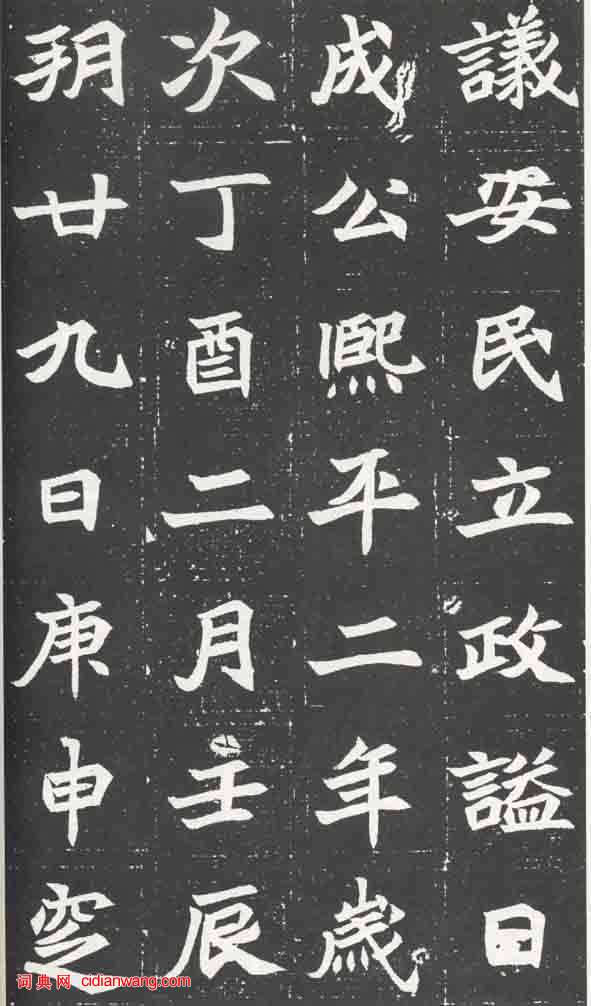 議安民立政謚曰
成公熙平二年歲
次丁酉二月壬辰
朔廿九日庚申窆
词典网 cidianwang.com